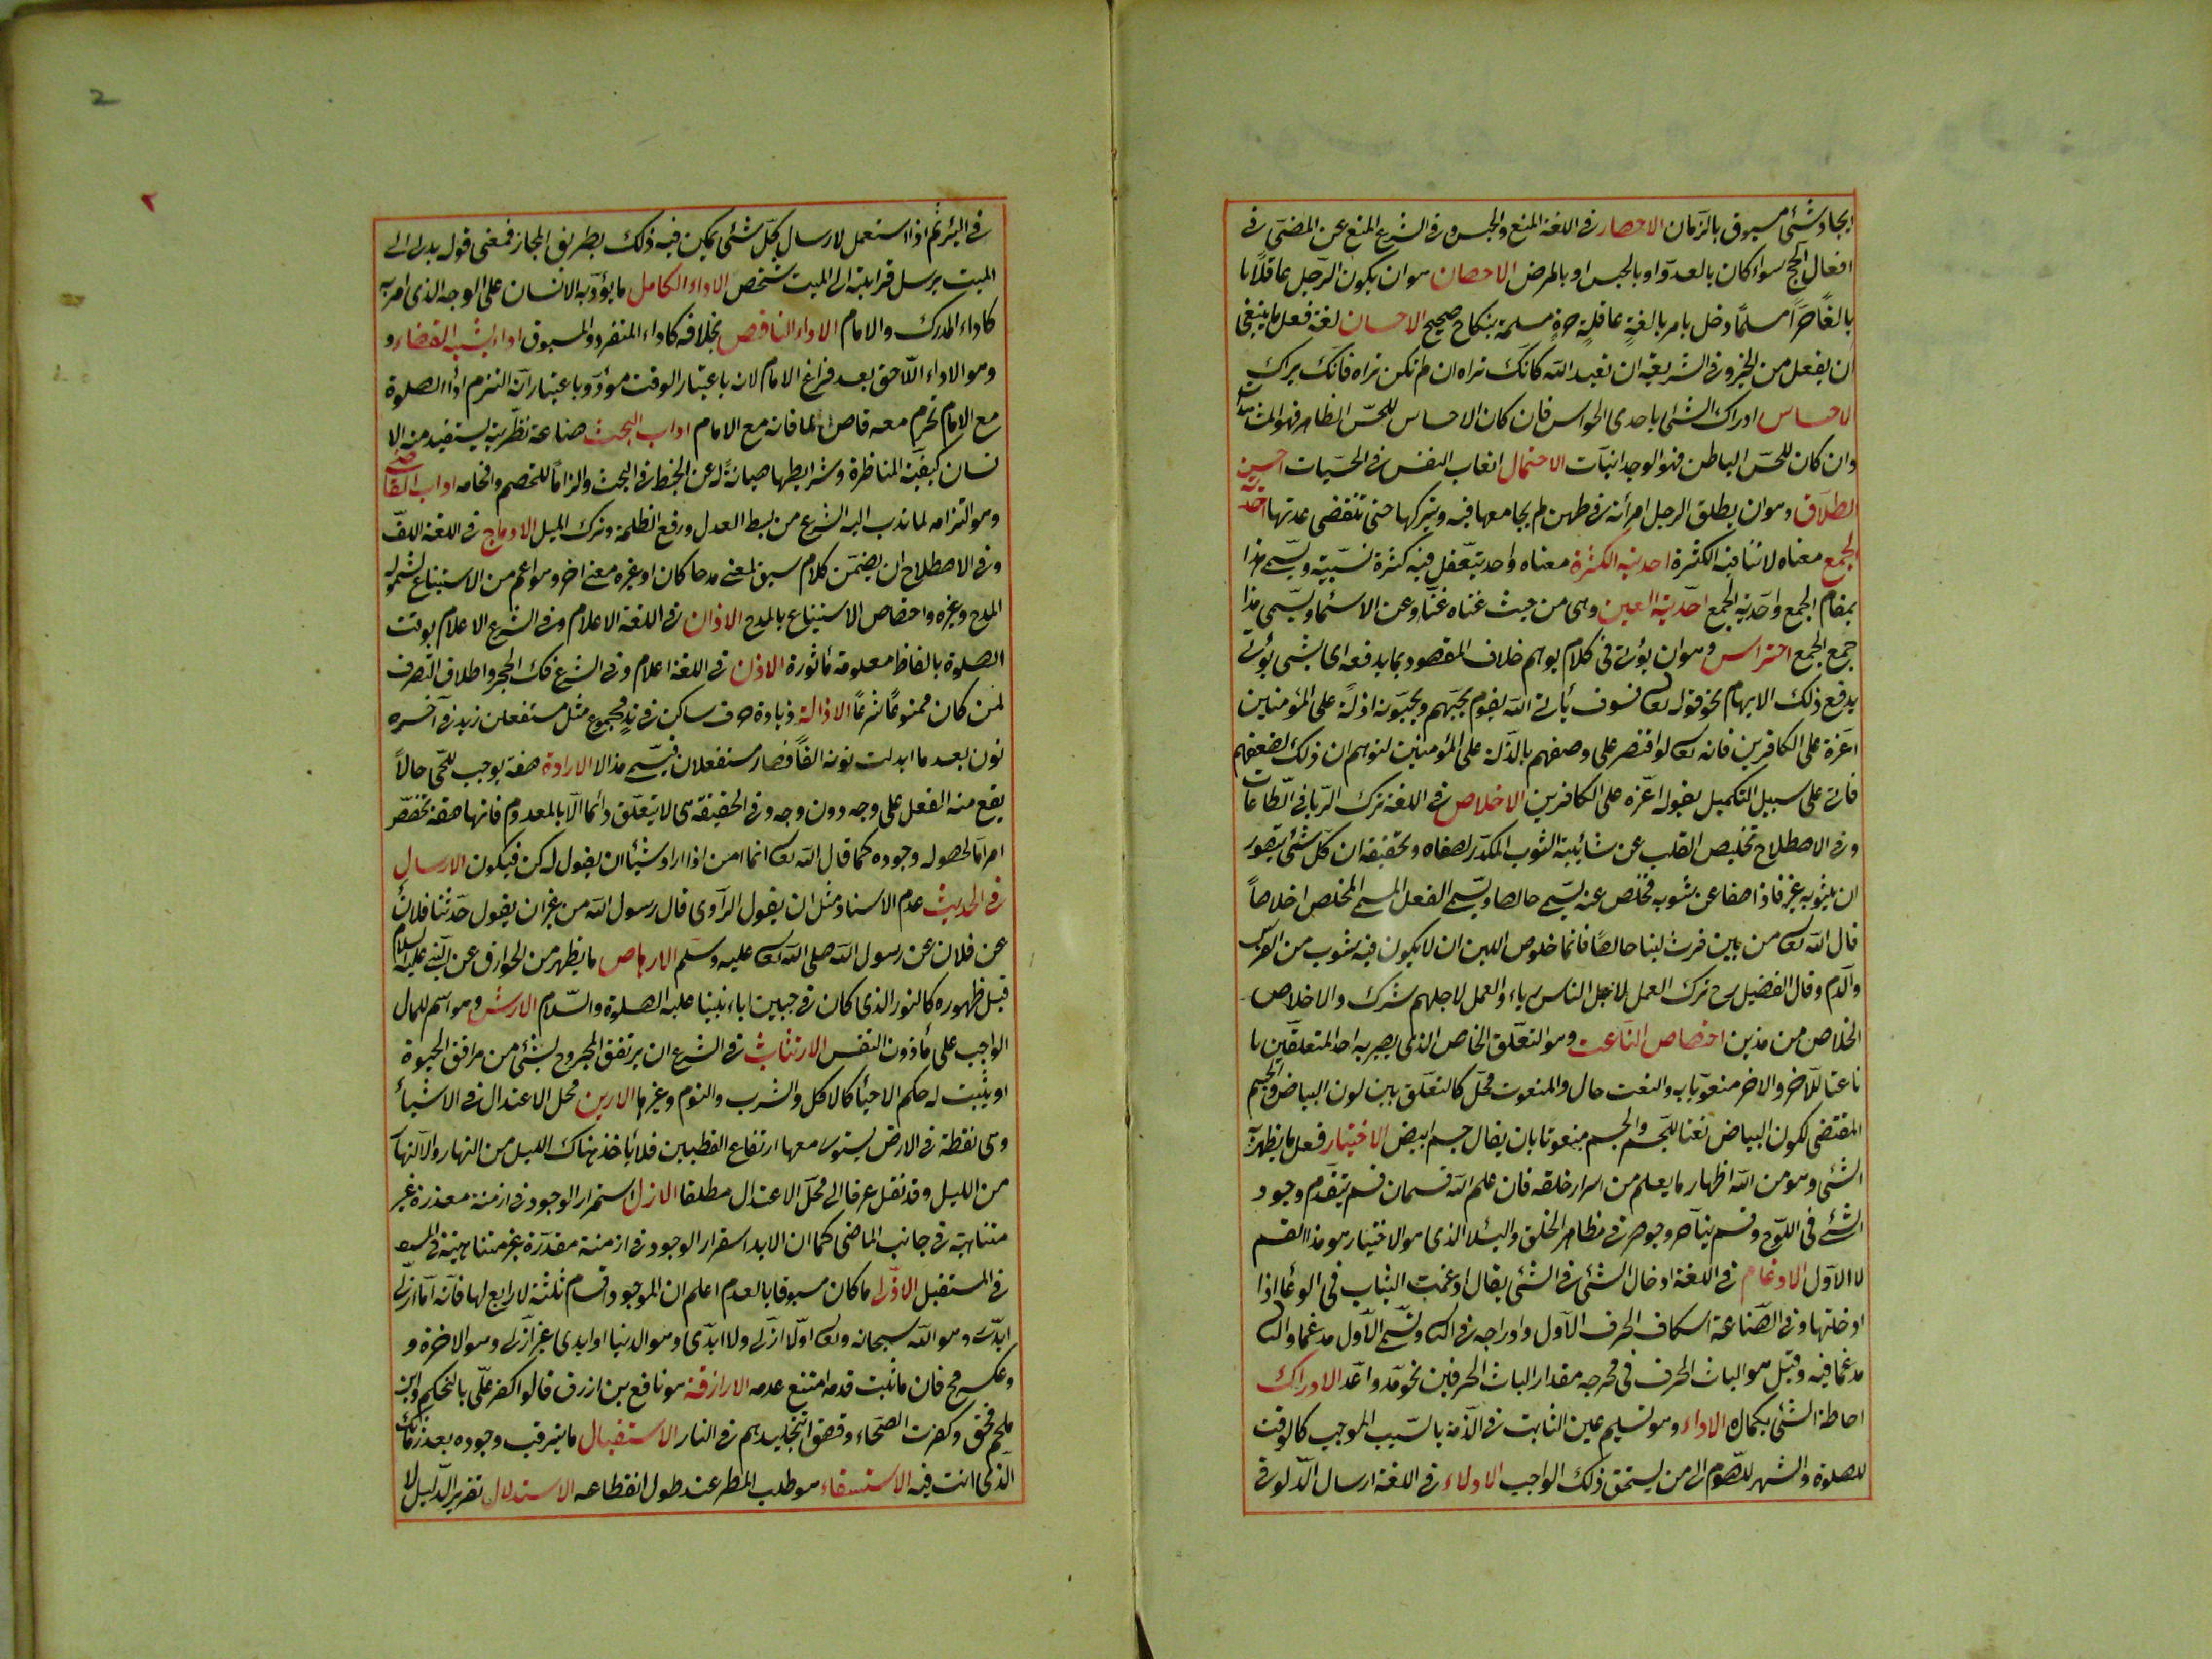 ايجاد شئ مسبوق بالزمان الاحصار فى اللغة المنع والحبس وفى الشرع المنع عن المضى فى
افعال الحج سواء كان بالعدو او بالحبس او بالمرض الاحصان هو ان يكون الرجل عاقلا با
بالغا حرا مسلما دخل بامراة بالغة عاقلة حرة مسلمة بنكاح صحيح الاحسان لغة فعل ما ينبغى
ان يفعل من الخير وفى الشريعة ان تعبد الله كانك تراه ان لم تكن تراه فانك يراك
الاحساس ادراك الشئ باحدى الحواس فان كان الاحساس للحس الظاهر فهو المشاهدات
وان كان للحس الباطن فهو الوجدانيات الاحتمال اتعاب النفس فى الحسيات احسن
الطلاق وهو ان يطلق الرجل امرأته فى طهر لم يجامعها فيه ويتركها حتى تنقضى عدتها احدية
الجمع معناه لا تنافيه الكثرة احدية الكثرة معناه واحد يتعقل فيه كثرة نسبية ويسمى هذا
بمقام الجمع واحدية الجمع احدية العين وهى من حيث غناه عنا وعن الاسماء ويسمى هذا
جمع الجمع احتراس وهو ان يؤتى فى كلام يوهم خلاف المقصود بما يدفعه اى بشئ يؤتى
يدفع ذلك الابهام نحو قوله تعالى فسوف يأتى الله بقوم يحبهم ويحبونه اذلة على المؤمنين
اعزة على الكافرين فانه تعالى لو اقتصر على وصفهم بالذلة على المؤمنين لتوهم ان ذلك لضعفهم
فاتى على سبيل التكميل بقوله اعزة على الكافرين الاخلاص فى اللغة ترك الريا فى الطاعات
وفى الاصطلاح تخليص القلب عن شائبة الشوب المكدر لصفاه وتحقيقه ان كل شئ يتصور
ان يشوبه غيره فاذا صفا عن شوبه فخلص عنه يسمى خالصا ويسمى الفعل المسمى المخلص اخلاصا
قال الله تعالى من بين فرث لبنا خالصا فانما خلوص اللبن ان لا يكون فيه شوب من الفرث
والدم وقال الفضيل رح ترك العمل لاجل الناس رياء والعمل لاجلهم شرك والاخلاص
الخلاص من هذين اختصاص الناعت وهو التعلق الخاص الذى يصير به احد المتعلقين با
ناعتا للآخر والاخر منعوتا به والنعت حال والمنعوت محل كالتعلق بين لون البياض والجسم
المقتضى لكون البياض نعتا للجسم والجسم منعوتا بان يقال جسم ابيض الاختبار فعل ما يظهر به
الشئ وهو من الله اظهار ما يعلم من اسرار خلقه فان علم الله قسمان قسم يتقدم وجود
الشئ فى اللوح وقسم يتأخر وجوده فى مظاهر الخلق والبلاء الذى هو الاختبار هو هذا القسم
لا الاول الادغام فى اللغة ادخال الشئ فى الشئ يقال ادغمت الثياب فى الوعاء اذا
ادخلتها وفى الصناعة اسكان الحرف الاول وادراجه فى الثانى ويسمى الاول مدغما والثانى
مدغما فيه وقيل هو الباث الحرف فى مخرجه مقدار الباث الحرفين نحو مد واعد الادراك
احاطة الشئ بكماله الاداء وهو تسليم عين الثابت فى الذمة بالسبب الموجب كالوقت
للصلوة والشهر للصوم الى من يستحق ذلك الواجب الادلاء فى اللغة ارسال الدلو فى
فى البئر ثم اذا استعمل لارسال كل شئ يمكن فيه ذلك بطريق المجاز فمعنى قوله يدلى الى
الميت يرسل قرابته الى الميت شخص الاداء الكامل ما يؤديه الانسان على الوجه الذى امر به
كاداء المدرك والامام الاداء الناقص بخلافه كاداء المنفرد والمسبوق اداء يشبه القضاء و
وهو الاداء اللاحق بعد فراغ الامام لانه باعتبار الوقت مؤد وباعتبار انه التزم اداء الصلوة
مع الامام تحرم معه قاض لما فاته مع الامام اداب البحث صناعة نظرية يستفيد منه الا
نسان كيفية المناظرة وشرايطها صيانة له عن الخبط فى البحث والزاما للخصم وافحامه اداب القاضى
وهو التزامه لما ندب اليه الشرع من بسط العدل ورفع الظلمة وترك الميل الادماج فى اللغة اللف
وفى الاصطلاح ان يضمن كلام سيق لمعنى مدحا كان او غيره معنى اخر وهو اعم من الاستتباع لشموله
المدح وغيره واختصاص الاستتباع بالمدح الاذان فى اللغة الاعلام وفى الشرع الاعلام بوقت
الصلوة بالفاظ معلومة مأثورة الاذن فى اللغة اعلام وفى الشرع فك الحجر واطلاق التصرف
لمن كان ممنوعا شرعا الاذالة زيادة حرف ساكن فى وتد مجموع مثل مستفعلن زيد فى آخره
نون بعد ما ابدلت نونه الفا فصار مستفعلان فيسمى مذالا الارادة صفة يوجب للحى حالا
يقع منه الفعل على وجه دون وجه وفى الحقيقة هى لا يتعلق دائما الا بالمعدوم فانها صفة تخصص
امرا ما لحصوله ووجوده كما قال الله تعالى انما امره اذا اراد شيئا ان يقول له كن فيكون الارسال
فى الحديث عدم الاسناد مثل ان يقول الراوى قال رسول الله من غير ان يقول حدثنا فلان
عن فلان عن رسول الله صلى الله تعالى عليه وسلم الارهاص ما يظهر من الخوارق عن النبى عليه السلام
قبل ظهوره كالنور الذى كان فى جبين اباء نبينا عليه الصلوة والسلام الارش وهو اسم للمال
الواجب على مأذون النفس الارتثاث فى الشرع ان يرتفق المجروح بشئ من مرافق الحيوة
او يثبت له حكم الاحياء كالاكل والشرب والنوم وغيرها الارين محل الاعتدال فى الاشياء
وهى نقطة فى الارض يستوى معها ارتفاع القطبين فلا يأخذ هناك الليل من النهار والا النهار
من الليل وقد نقل عرفا الى محل الاعتدال مطلقا الازل استمرار الوجود فى ازمنة مقدرة غير
متناهية فى جانب الماضى كما ان الابد استمرار الوجود فى ازمنة مقدرة غير متناهية فى
فى المستقبل الازلى ما كان مسبوقا بالعدم اعلم ان الموجود اقسام ثلثة لا رابع لها فانه اما ازلى
ابدى وهو الله سبحانه وتعالى او لا ازلى ولا ابدى وهو الدنيا او ابدى غير ازلى وهو الاخرة و
وعكسه مح فان ما ثبت قدمه امتنع عدمه الازارقة هو نافع بن ازرق قالوا كفر على بالتحكيم وابن
ملجم محق وكفرت الصحابة وقضوا بتخليدهم فى النار الاستقبال ما يترقب وجوده بعد زمانك
الذى انت فيه الاستسقاء هو طلب المطر عند طول انقطاعه الاستدلال تقرير الدليل لا
2
٢